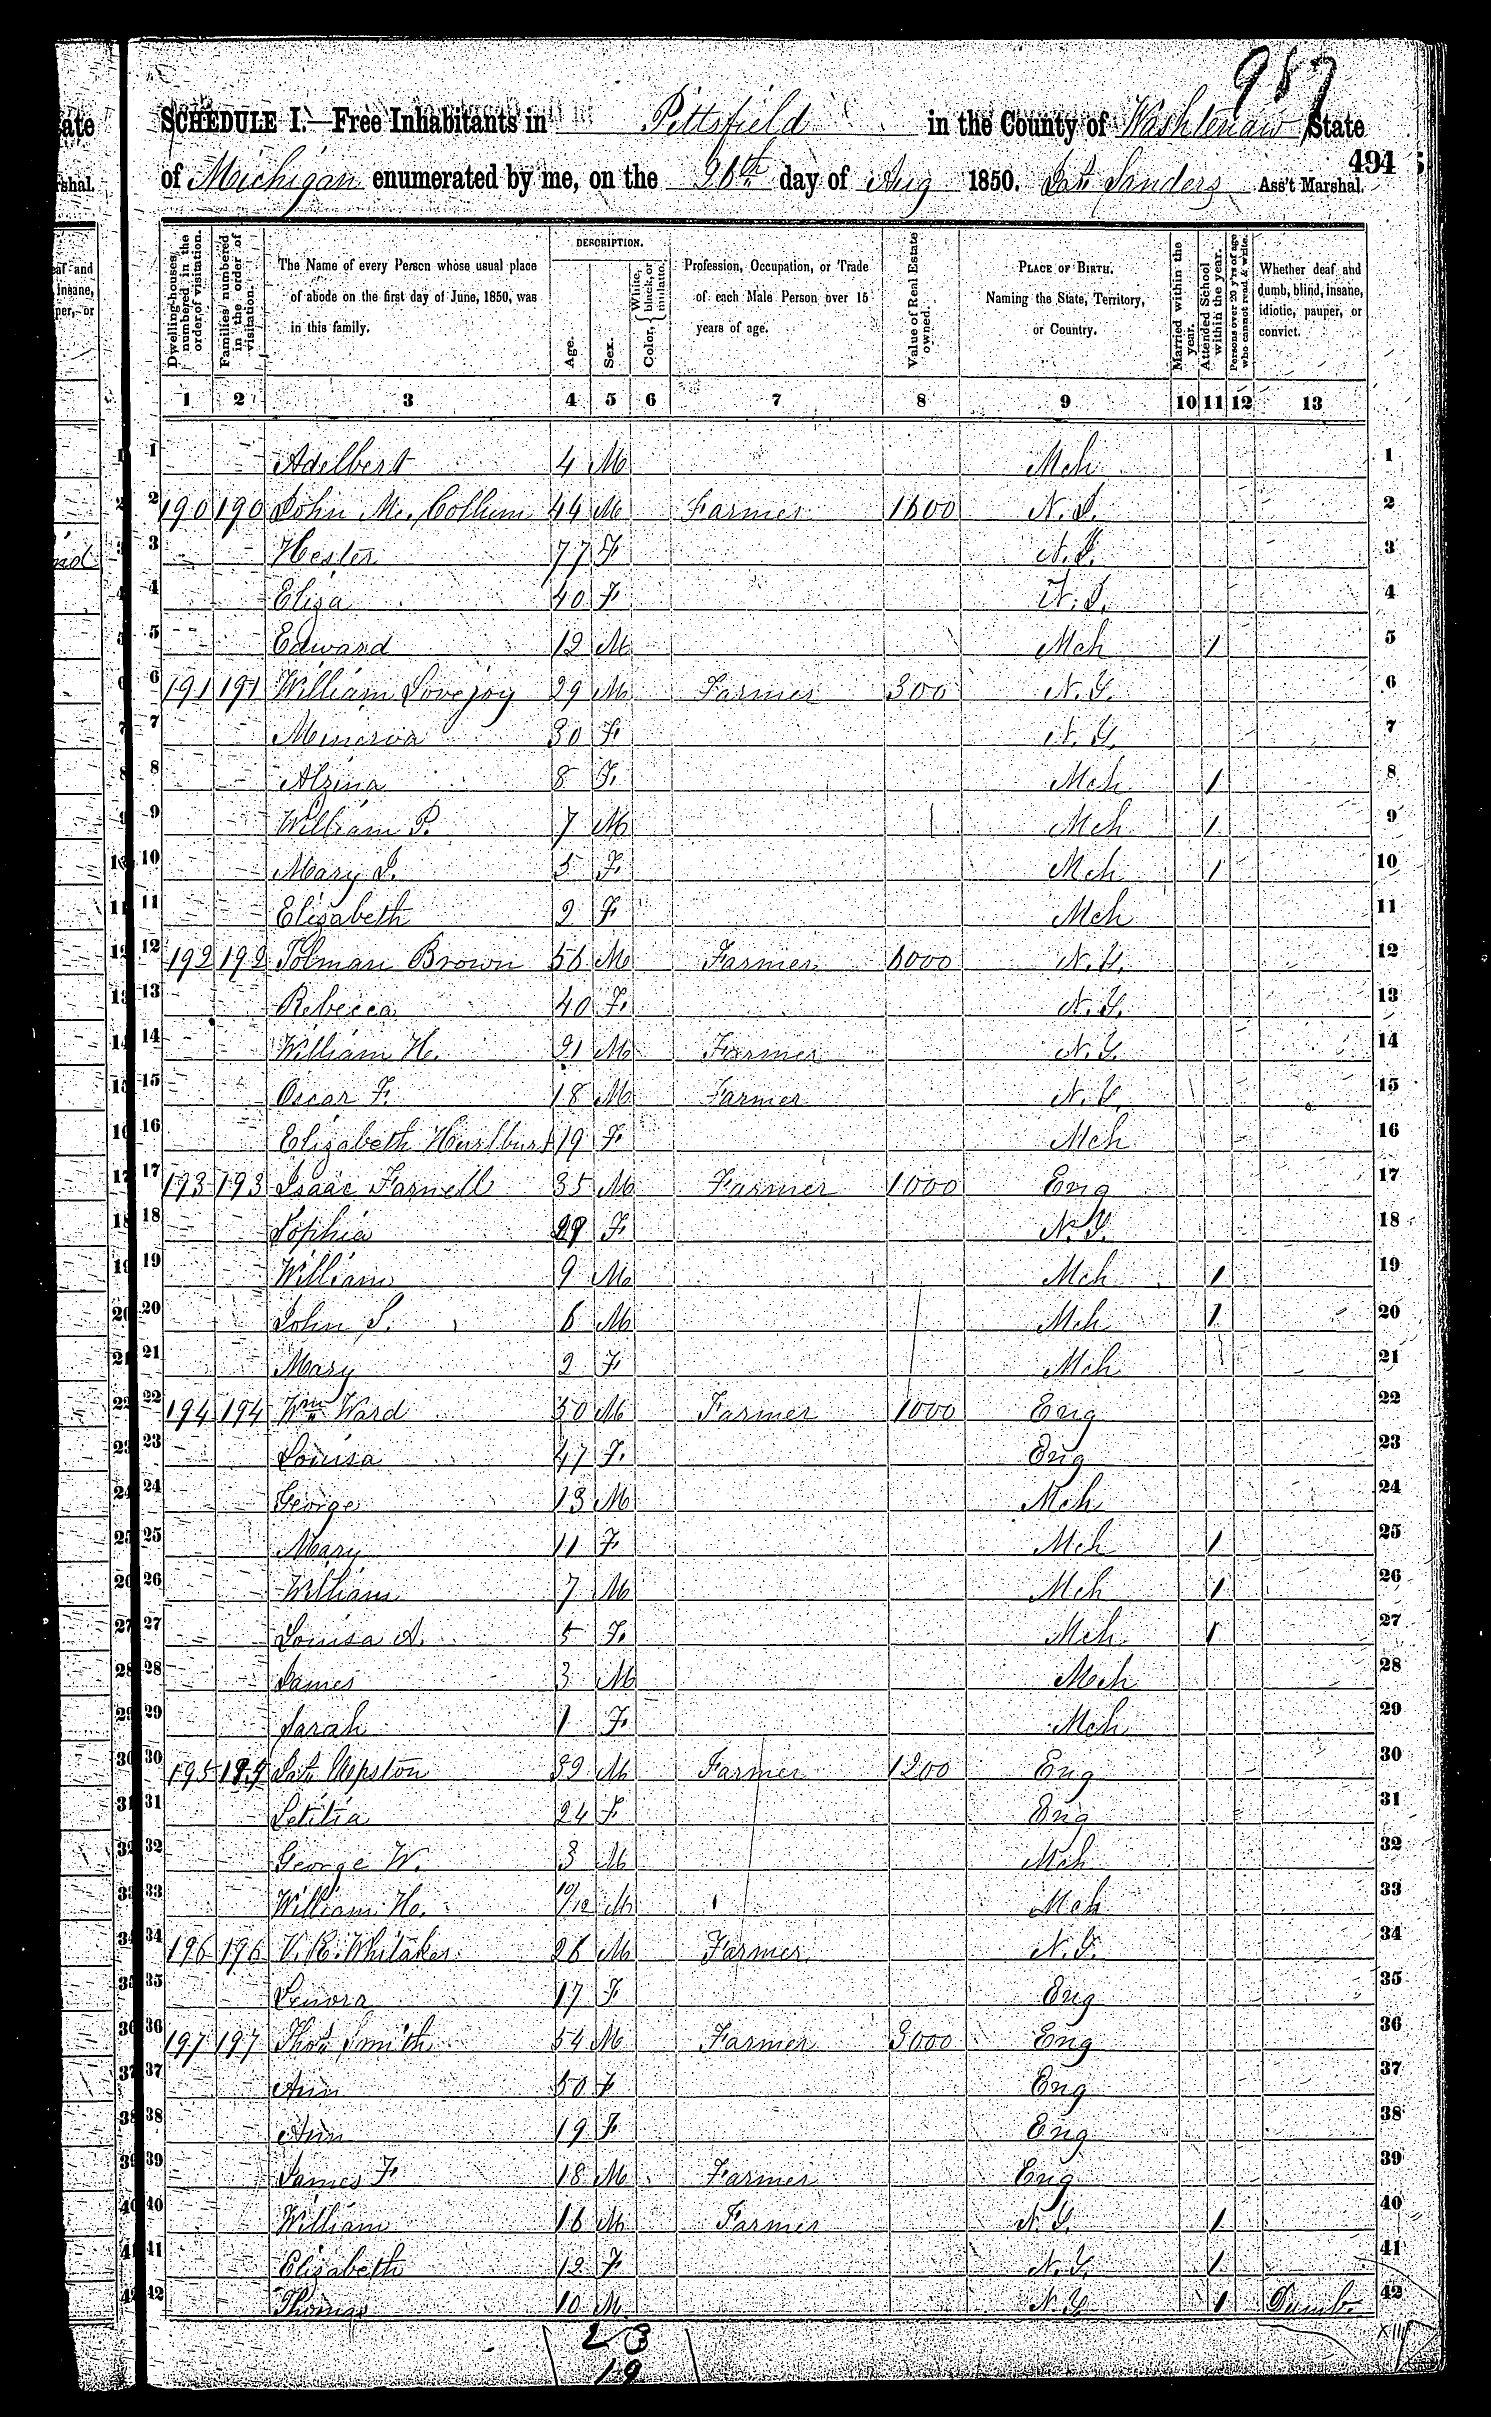 987
SCHEDULE I.—Free Inhabitants in Pittsfield in the County of Washtenaw State
of Michigan enumerated by me, on the 26th day of Aug 1850. Sanders Ass't Marshal.
494
Dwelling-houses numbered in the order of visitation.
Families numbered in the order of visitation.
The Name of every Person whose usual place of abode on the first day of June, 1850, was in this family.
DESCRIPTION.
Age.
Sex.
Color, White, black, or mulatto.
Profession, Occupation, or Trade of each Male Person over 15 years of age.
Value of Real Estate owned.
PLACE OF BIRTH. Naming the State, Territory, or Country.
Married within the year.
Attended School within the year.
Persons over 20 y'rs of age who cannot read & write.
Whether deaf and dumb, blind, insane, idiotic, pauper, or convict.
1 2 3 4 5 6 7 8 9 10 11 12 13
1 Adelbert 4 M Mch 1
2 190 190 John Mc. Collum 44 M Farmer 1600 N. J. 2
3 Hester 77 F N. J. 3
4 Eliza 40 F N. J. 4
5 Edward 12 M Mch 1 5
6 191 191 William Lovejoy 29 M Farmer 300 N. Y. 6
7 Minerva 30 F N. Y. 7
8 Alzina 8 F Mch 1 8
9 William P. 7 M Mch 1 9
10 Mary J. 5 F Mch 1 10
11 Elizabeth 2 F Mch 11
12 192 192 Tolman Brown 56 M Farmer 6000 N. Y. 12
13 Rebecca 40 F N. Y. 13
14 William H. 21 M Farmer N. Y. 14
15 Oscar F. 18 M Farmer N. Y. 15
16 Elizabeth Hurlburt 19 F Mch 16
17 193 193 Isaac Farnell 35 M Farmer 1000 Eng 17
18 Sophia F N. Y. 18
19 William 9 M Mch 1 19
20 John S. 6 M Mch 1 20
21 Mary 2 F Mch 21
22 194 194 Wm Ward 50 M Farmer 1000 Eng 22
23 Louisa 47 F Eng 23
24 George 13 M Mch 24
25 Mary 11 F Mch 1 25
26 William 7 M Mch 1 26
27 Louisa A. 5 F Mch 1 27
28 James 3 M Mch 28
29 Sarah 1 F Mch 29
30 195 Jas Clepston 39 M Farmer 1200 Eng 30
31 Letitia 24 F Eng 31
32 George W. 3 M Mch 32
33 William H. 10/12 M Mch 33
34 196 196 V. R. Whitaker 26 M Farmer N. Y. 34
35 Lenora 17 F Eng 35
36 197 197 Thos Smith 54 M Farmer 3000 Eng 36
37 Ann 50 F Eng 37
38 Ann 19 F Eng 38
39 James F 18 M Farmer Eng 39
40 William 16 M Farmer N. Y. 1 40
41 Elizabeth 12 F N. Y. 1 41
42 Thomas 10 M N. Y. 1 Dumb. 42
23
19